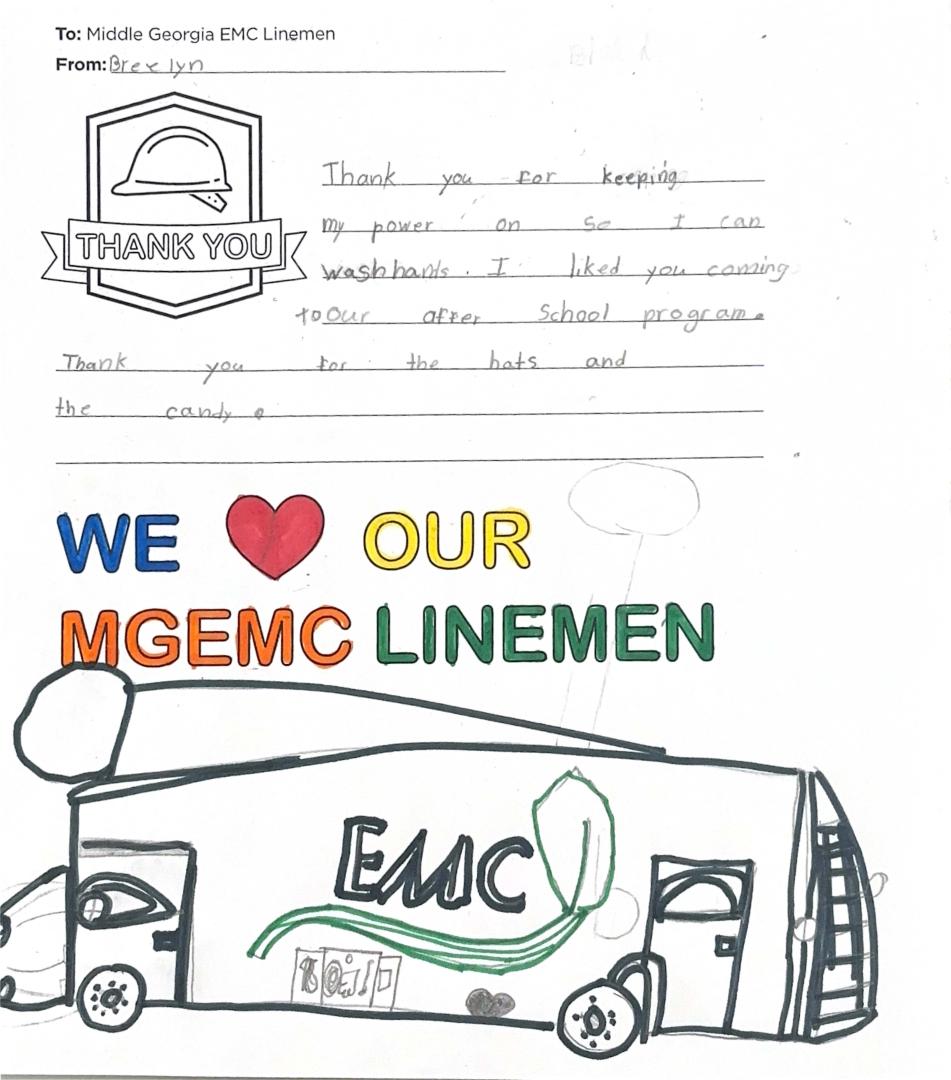 To: Middle Georgia EMC Linemen
From: Brexlyn
Thank you for keeping
THANK YOU
my power on so I can
wash hands. I liked you coming
to our after School program.
Thank you for the hats and
the candy.
WE OUR
MGEMC LINEMEN
EMC